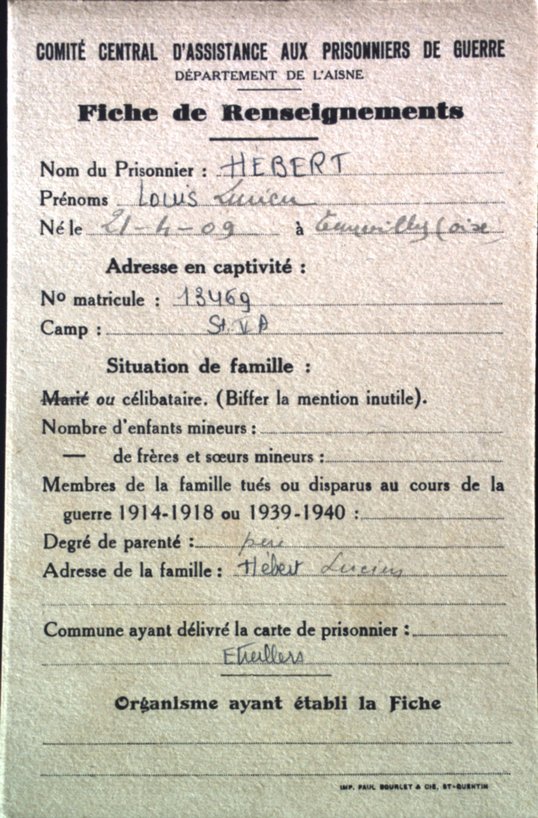 COMITÉ CENTRAL D'ASSISTANCE AUX PRISONNIERS DE GUERRE
DÉPARTEMENT DE L'AISNE
Fiche de Renseignements
Nom du Prisonnier : HEBERT
Prénoms Louis Lucien
Né le 21-4-09 à (oise)
Adresse en captivité :
No matricule : 13469
Camp : St. V A
Situation de famille :
Marié ou célibataire. (Biffer la mention inutile).
Nombre d'enfants mineurs :
— de frères et sœurs mineurs :
Membres de la famille tués ou disparus au cours de la
guerre 1914-1918 ou 1939-1940 :
Degré de parenté : père
Adresse de la famille : Hébert Lucien
Commune ayant délivré la carte de prisonnier :
Etreillers
Organisme ayant établi la Fiche
IMP. PAUL BOURLET & CIE, ST-QUENTIN